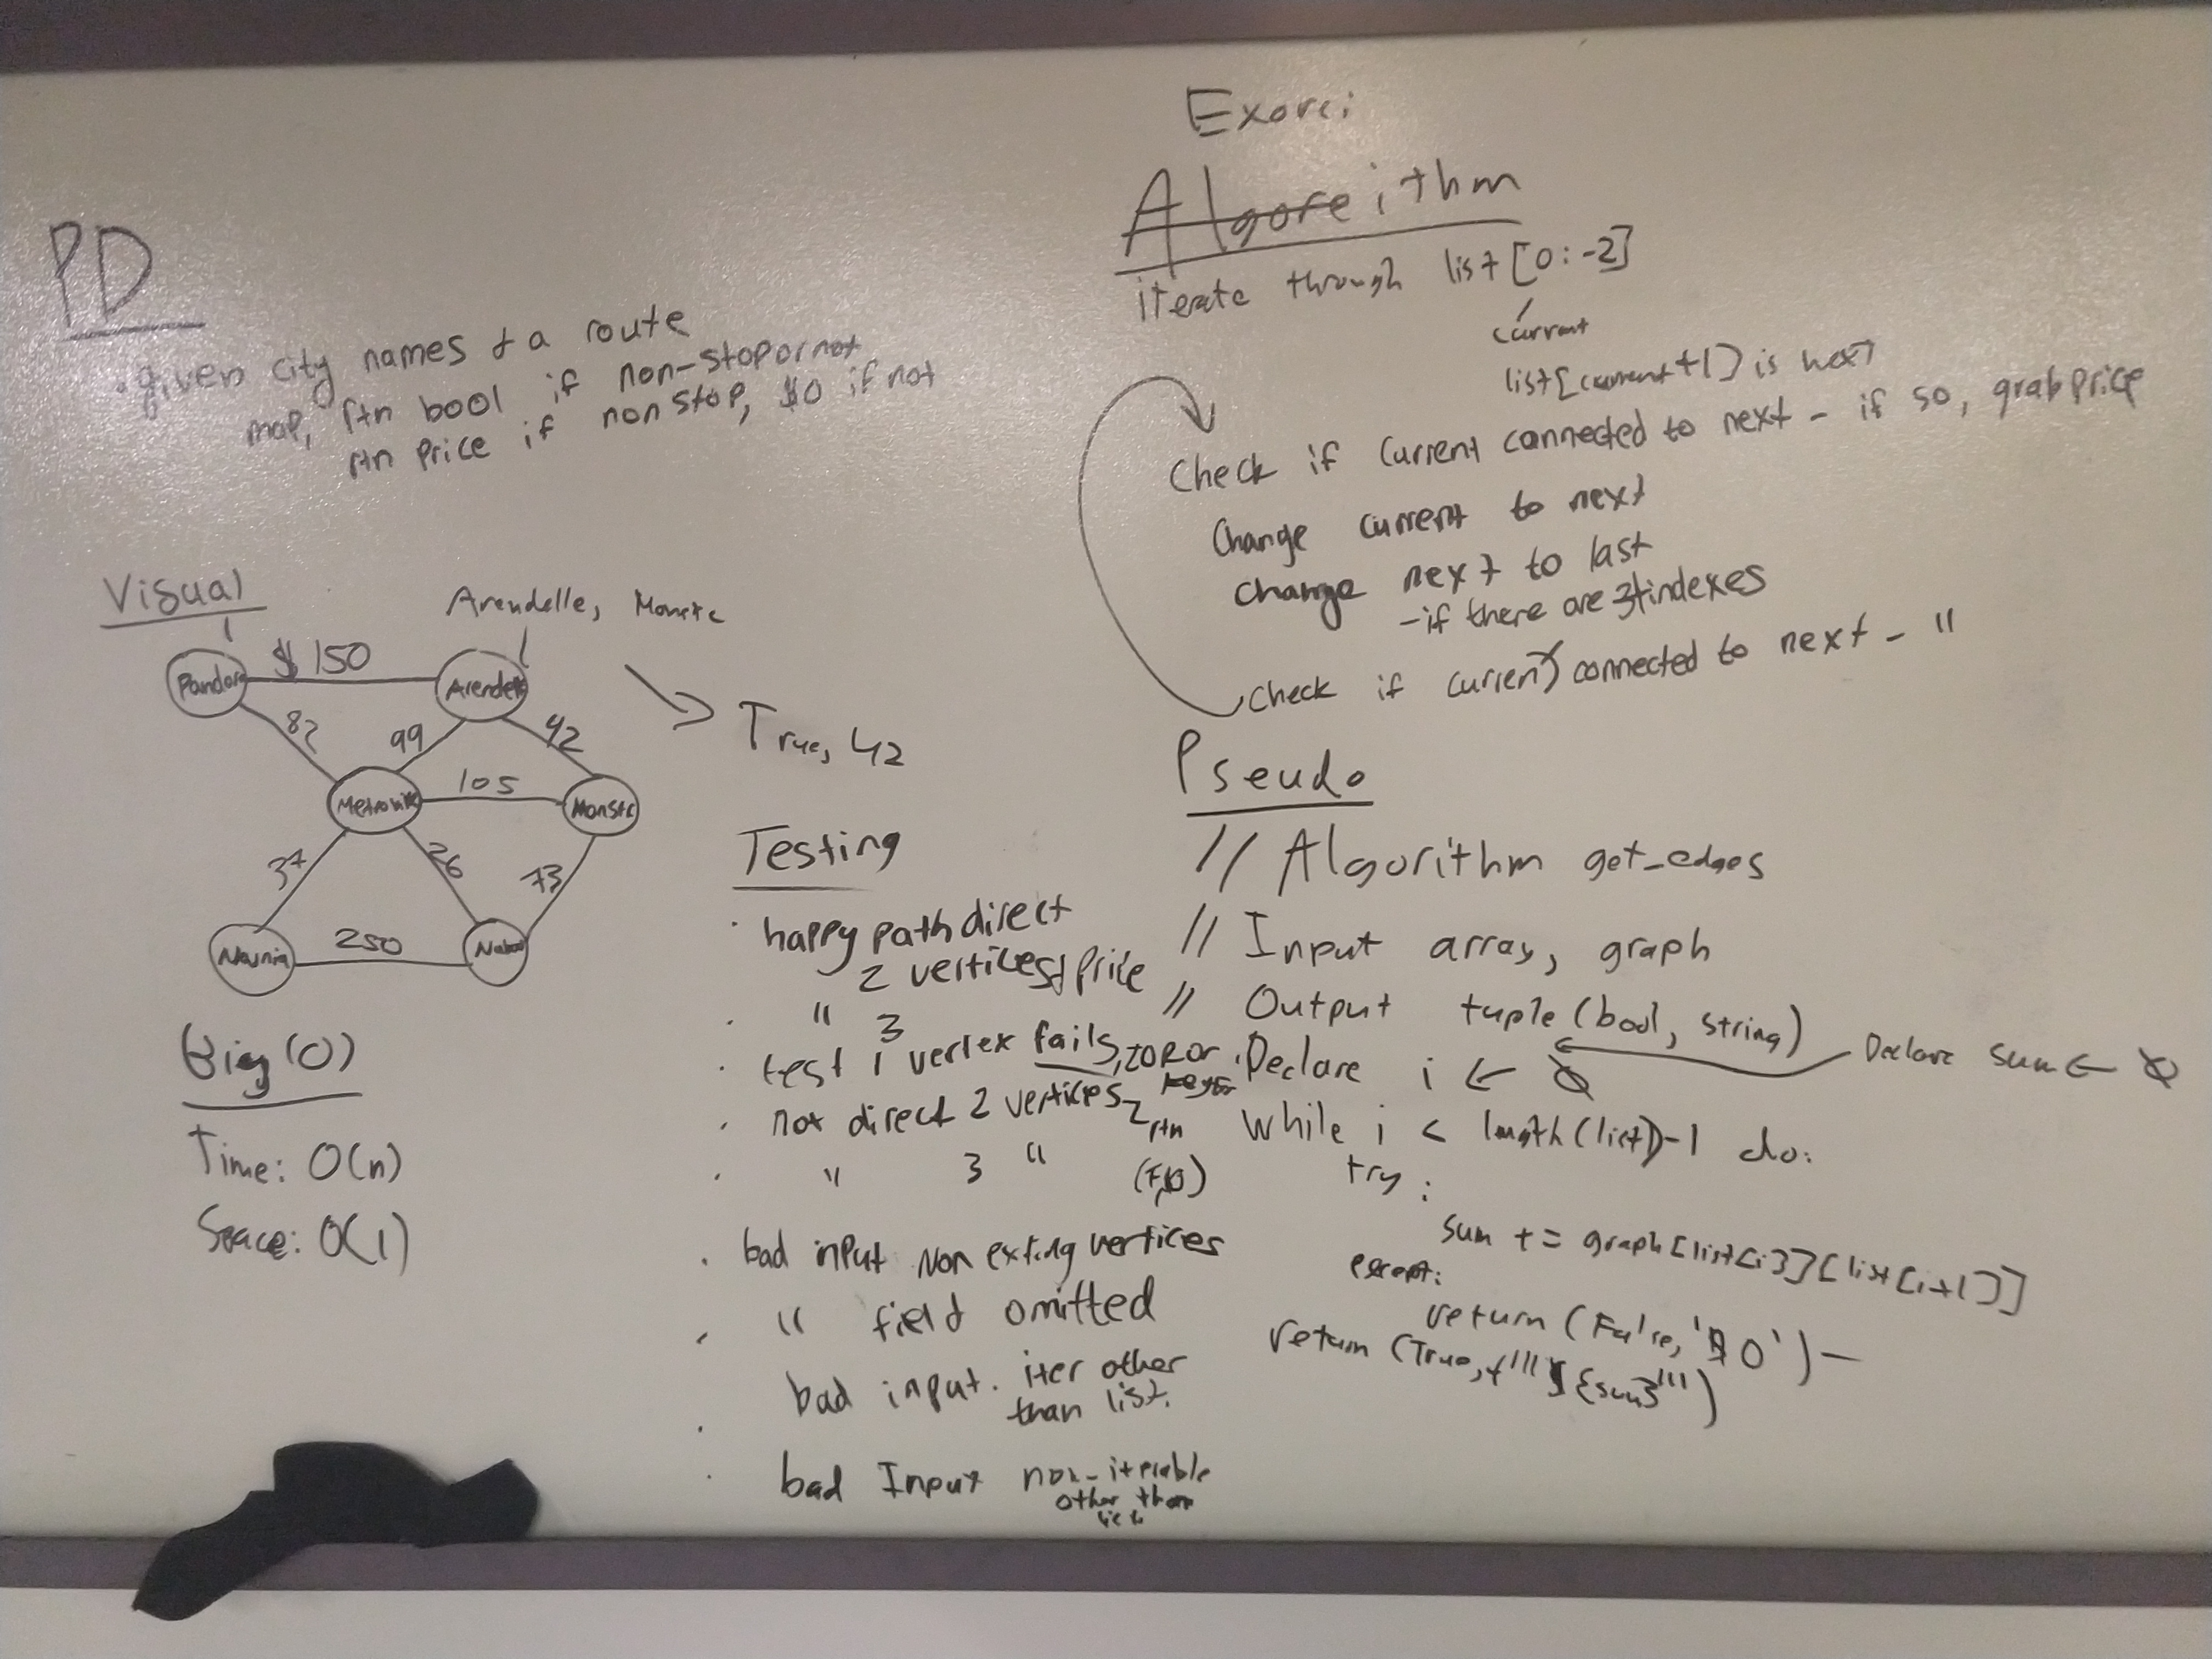 PD
· given city names & a route
map, rtn bool if non-stop or not
rtn price if non stop, $0 if not
Visual
Arendelle, Monstr
Pandora
$ 150
Arendelle
82
99
42
True, 42
105
Monstr
37
26
73
Narnia
250
Big (O)
Time: O(n)
Space: O(1)
Testing
· happy path direct
2 vertices & price
· " 3
· test 1 vertex fails,
· not direct 2 vertices
rtn
· " 3 "
· bad input Non exting vertices
· " field omitted
bad input. iter other
than list.
· bad Input non-iterable
other than
list
Exorci
Algoreithm
iterate through list [0:-2]
current
list[current+1] is next
Check if current connected to next - if so, grab price
Change current to next
change next to last
- if there are 3+ indexes
check if current connected to next - "
Pseudo
// Algorithm get_edges
// Input array, graph
// Output tuple (bool, string)
Declare sum ← 0
Declare i ← 0
While i < length(list)-1 do:
try:
sum += graph[list[i]][list[i+1]]
except:
return (False, '$0')
return (True, f'''${sum}''')